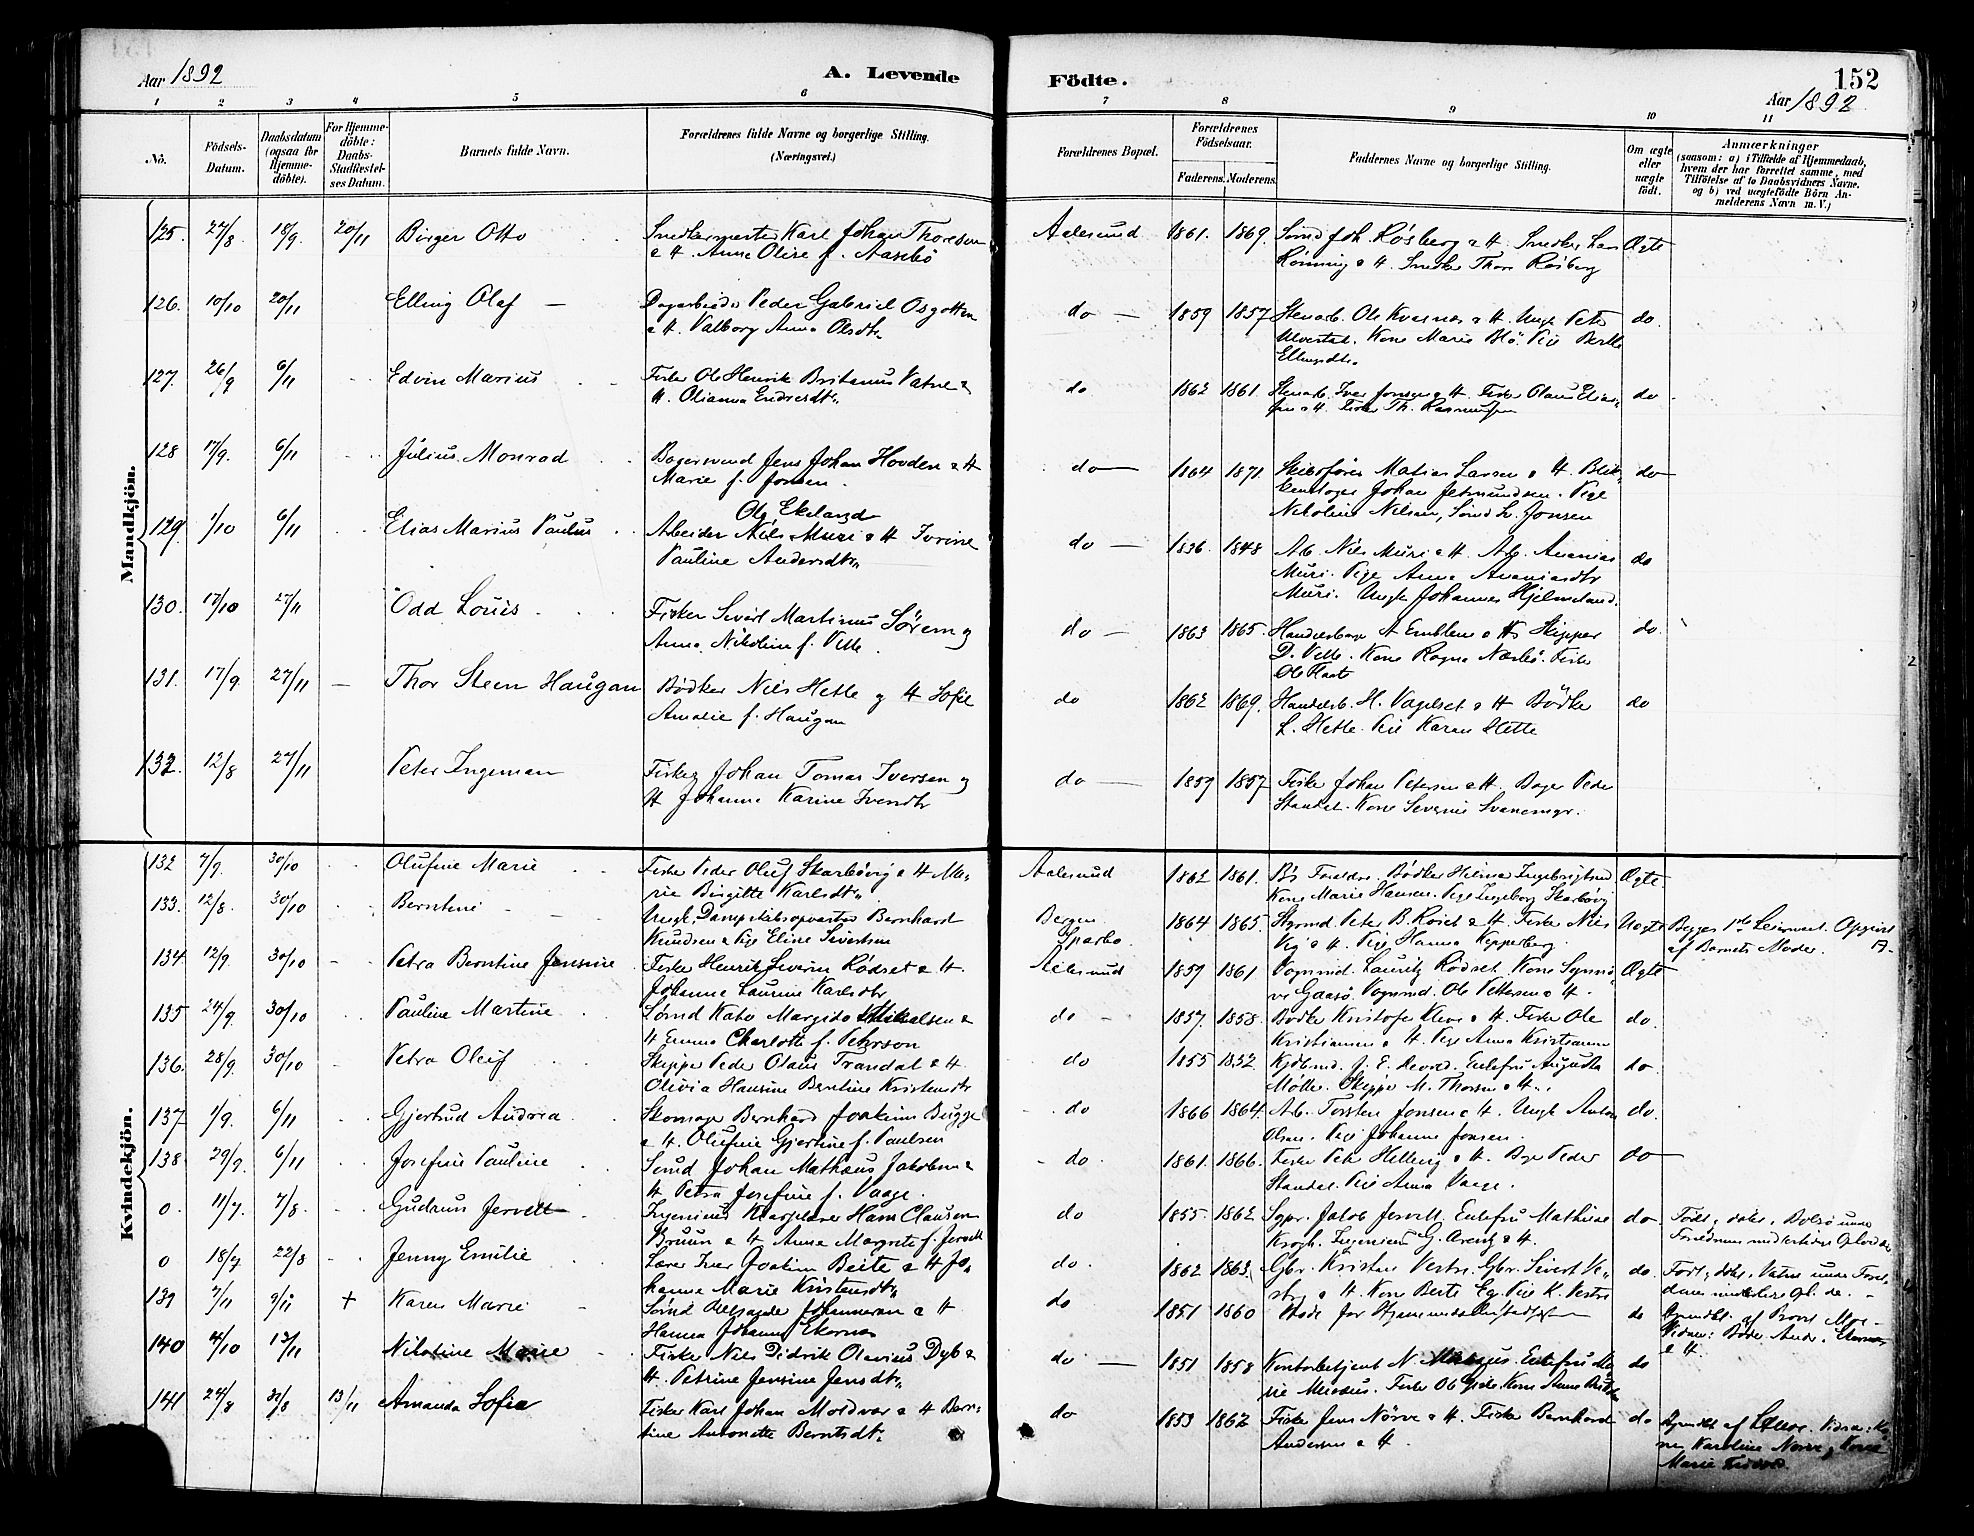 Aar 1892
A. Levende
Födte.
152
Aar 1892
1 2 3 4 5 6 7 8 9 10 11
No.
Födsels-Datum.
Daabsdatum (ogsaa for Hjemme-döbte).
For Hjemme-döbte: Daabs-Stadfæstel-ses Datum.
Barnets fulde Navn.
Forældrenes fulde Navne og borgerlige Stilling.
(Næringsvei.)
Forældrenes Bopæl.
Forældrenes Födselsaar.
Faderens. Moderens.
Faddernes Navne og borgerlige Stilling.
Om ægte eller uægte födt.
Anmærkninger
(saasom: a) i Tilfælde af Hjemmedaab,
hvem der har forrettet samme, med
Tilföielse af to Daabsvidners Navne,
og b) ved uægtefödte Börn An-
melderens Navn m. V.)
Mandkjön.
125. 27/8 18/9. 20/11 Birger Otto Snedkermester Karl Johan Thoresen
& H. Anna Olise f. Aasebö
Aalesund 1861. 1869. Sömd Joh. Røsberg & H. Snedker Lars Ægte
Rönning & H. Snedker Thore Røsberg
126. 10/10 20/11 Elling Olaf Dagarbeider Peder Gabriel Osgotten
& H. Valborg Anna Olsdtr
do 1859 1857 Stenarb. Ole Kvasnes & H. Ungk Peter do.
Ulvestad. Kone Marie Blö. Pige Berthe
Ellingsdtr.
127. 26/9 6/11 Edvin Marius Fisker Ole Henrik Britanus Vatne &
H. Olianna Endresdtr
do 1862 1861. Stenarb. Iver Jonsen & H. Fisker Olaus Elias- do
sen & H. Fisker Th. Rasmussen
128 17/9. 6/11 Julius Monrad Bagersvend Jens Johan Hovden & H
Marie f. Jonsen.
do 1864 1871. Skibsfører Matias Larsen & H. Blik- do
kenslager Johan Jetmundsen. Pige
Nikoline Nilsen, Sömd L. Jonsen
129. 1/10 6/11 Elias Marius Paulus Ole Ekeland
Arbeider Nils Muri & H Ivrine
Pauline Andersdtr
do 1836. 1848 Arb. Nils Muri & H. Arb. Ananias do
Muri. Pige Anna Ananiasdtr
Muri. Ungk Johannes Hjelmeland.
130. 17/10 27/11 Odd Louis Fisker Sivert Martinus Sörem og
Anna Nikoline f. Velle.
do 1863 1865. Handelsborger A Emblem & H Skipper do.
D. Velle. Kone Ragna Nærbö. Fisker
Ole Flaate
131. 17/9 27/11 Thor Steen Haugan Bödker Nils Hetle og H Sofie
Amalie f. Haugan
do 1862 1869. Handelsb. H. Vagelset & H Bödker do
L. Hetle. Pige Karen Hetle
132. 12/8 27/11 Peter Ingeman Fisker Johan Tomas Iversen og
H Johanna Karine Ivensdtr
do 1857 1857 Fisker Johan Petersen & H. Bager Peder
Standal. Kone Severine Svanemyr.
Kvindekjön.
132 7/9. 30/10 Olufine Marie Fisker Peder Oluf Skarbövig & H Ma-
rie Birgitte Karlsdtr
Aalesund 1862 1861. B's Forældre. Bødker Helmer Ingebrigtsen Ægte
Kone Marie Hansen. Pige Ingeborg Skarbövig
133. 12/8. 30/10 Berntine Ungk. Dampskibsopvarter Bernhard
Knudsen & Pige Eline Sivertsen
Bergen.
Sparbo. 1864 1865. Styrmd Peter B. Roiset & H. Fisker Nils Uægte
Vig & H. Pige Hanna Kipperberg.
Begges 1ste Leiermaal. Opgivet
af Barnets Moder.
134 12/9. 30/10 Petra Berntine Jensine Fisker Henrik Severin Rødset & H.
Johanna Laurine Karlsdtr
Aalesund 1857 1861 Vognmd. Lauritz Rödset. Kone Synnö- Ægte
ve Gaasö. Vognmd. Ole Pettersen & H.
135 24/9. 30/10 Pauline Martine Sömd Kato Margido Mikalsen &
H Emma Charlotte f. Peterson
do 1857. 1858. Bödker Kristofer Kleve & H. Fisker Ole do.
Kristiansen & H. Pige Anna Kristiansen
136. 28/9. 30/10 Petra Oleif Skipper Peder Olaus Trandal & H
Olivia Hansine Berntine Kristensdtr
do 1855 1852 Kjöbmd. J. E. Devold. Enkefru Augusta do.
Möller. Skipper M. Thorsen & H.
137 1/9. 6/11 Gjertrud Andrea Skomager Bernhard Joakim Bugge
& H. Olufine Gjertine f. Paulsen
do 1866 1864. Arb. Torsten Jonsen & H. Ungk Anton do.
Olsen. Pige Johanne Jonsen.
138 29/9. 6/11 Josefine Pauline Sömd Johan Mathæus Jakobsen &
H. Petra Josefine f. Vaage.
do. 1861. 1866. Fisker Peter Hellevig & H. Bager Peder do
Standal. Pige Anna Vaage.
0. 11/7. 7/8. Gudrun Jervell Ingeniørs Hans Clausen
Bruun & H Anna Margrete f. Jervell
do 1855 1862 Sgpr. Jakob Jervell. Enkefru Mathilde do
Krogh. Ingeniør G. Arentz & H.
Födt, döbt, Bolsö under
Forældrenes midlertidige Ophold der
0 18/7 22/8 Jenny Emilie Lærer Iver Joakim Beite & H Jo-
hanna Marie Kristensdtr
do. 1862 1863. Gbr. Kristen Vestre. Gbr. Sivert Ve- do.
stre & H. Kone Berte Eg. Pige K. Vestre
Födt, döbt, Vatne under Foræl-
drenes midlertidige Oph. der.
139 7/11 9/11 + Karen Marie Sömd Johannesen & H
Hanna Johanne Ekornes
do 1851 1860 Døde før Hjemmedaabens Stadfæstelse do
Hjemdöbt af
& H.
140 4/10 13/11 Nikoline Marie Fisker Nils Didrik Olavius Dyb &
H. Petrine Jensine Jensdtr
do 1851 1858 Kontorbetjent N. Meidsus. Enkefru Ma- do
rie Meidsus. Fisker Ole Gjede. Kone Anna
141 24/8 31/8 13/11 Amanda Sofie Fisker Karl Johan Mordvar & H Bern-
tine Antonette Berntsdtr
do 1853 1862 Fisker Jens Nörve & H. Fisker Bernhard do
Andersen & H.
Hjemdöbt af Vidner: Ko-
ne Karoline Nörve, Kone
Marie